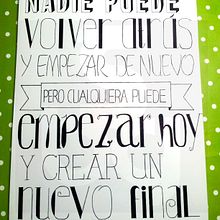 NADIE PUEDE
volver atrás
Y EMPEZAR DE NUEVO
PERO CUALQUIERA PUEDE
empezar hoy
Y CREAR UN
nuevo final